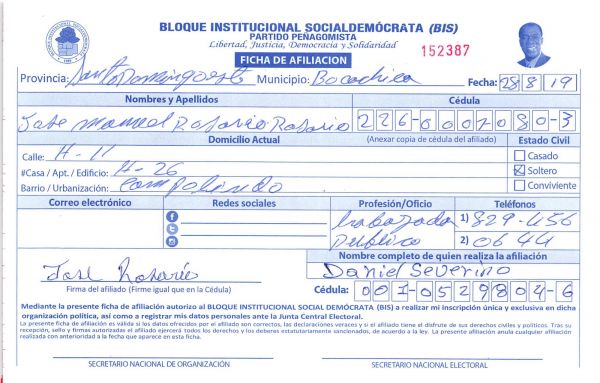 BLOQUE INSTITUCIONAL SOCIALDEMÓCRATA (BIS)
PARTIDO PEÑAGOMISTA
Libertad, Justicia, Democracia y Solidaridad
FICHA DE AFILIACION
152387
Provincia: Santo Domingo est Municipio: Bocachica Fecha: 28 8 19
Nombres y Apellidos Cédula
Jose Manuel Rosario Rosario 226-0007080-3
Domicilio Actual (Anexar copia de cédula del afiliado) Estado Civil
Calle: H-11 Casado
#Casa / Apt. / Edificio: H-26 Soltero
Barrio / Urbanización: Campolindo Conviviente
Correo electrónico Redes sociales Profesión/Oficio Teléfonos
trabazador 1) 829-456
publico 2) 0644
Nombre completo de quien realiza la afiliación
José Rosario Daniel Severino
Firma del afiliado (Firme igual que en la Cédula) Cédula: 001-0529804-6
Mediante la presente ficha de afiliación autorizo al BLOQUE INSTITUCIONAL SOCIAL DEMÓCRATA (BIS) a realizar mi inscripción única y exclusiva en dicha
organización política, así como a registrar mis datos personales ante la Junta Central Electoral.
La presente ficha de afiliación es válida si los datos ofrecidos por el afiliado son correctos, las declaraciones veraces y si el afiliado tiene el disfrute de sus derechos civiles y políticos. Tras su
recepción, sello y firmas autorizadas el afiliado ejercerá todos los derechos y los deberes estatutariamente sancionados, de acuerdo a la ley. La presente afiliación anula cualquier afiliación
realizada con anterioridad a la fecha que aparece en esta ficha.
SECRETARIO NACIONAL DE ORGANIZACIÓN SECRETARIO NACIONAL ELECTORAL